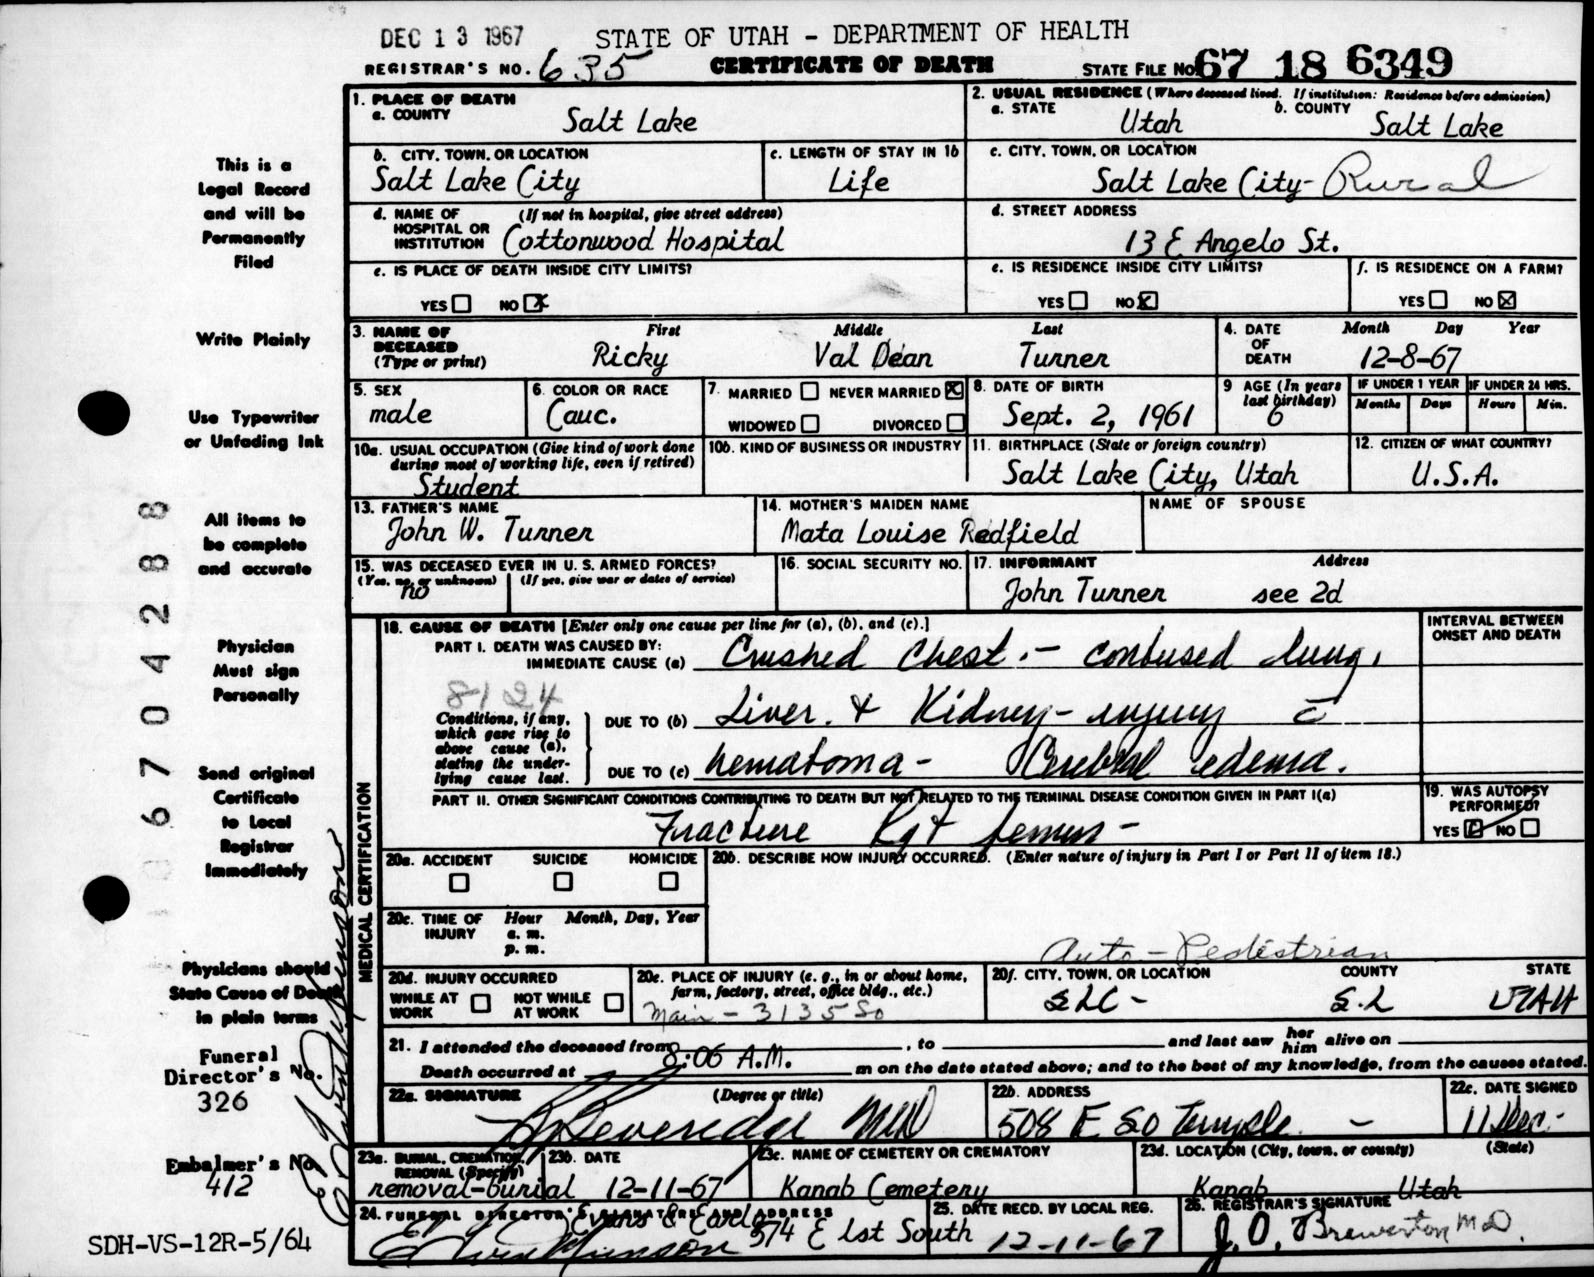 DEC 13 1967
STATE OF UTAH - DEPARTMENT OF HEALTH
REGISTRAR'S NO. 635
CERTIFICATE OF DEATH
STATE FILE No. 67 18 6349
1. PLACE OF DEATH
a. COUNTY
Salt Lake
2. USUAL RESIDENCE (Where deceased lived. If institution: Residence before admission)
a. STATE
Utah
b. COUNTY
Salt Lake
b. CITY, TOWN, OR LOCATION
Salt Lake City
c. LENGTH OF STAY IN 1b
Life
c. CITY, TOWN, OR LOCATION
Salt Lake City- Rural
d. NAME OF HOSPITAL OR INSTITUTION
(If not in hospital, give street address)
Cottonwood Hospital
d. STREET ADDRESS
13 E Angelo St.
e. IS PLACE OF DEATH INSIDE CITY LIMITS?
YES NO X
e. IS RESIDENCE INSIDE CITY LIMITS?
YES NO X
f. IS RESIDENCE ON A FARM?
YES NO X
3. NAME OF DECEASED (Type or print)
First Middle Last
Ricky Val Dean Turner
4. DATE OF DEATH
Month Day Year
12-8-67
5. SEX
male
6. COLOR OR RACE
Cauc.
7. MARRIED NEVER MARRIED X
WIDOWED DIVORCED
8. DATE OF BIRTH
Sept. 2, 1961
9 AGE (In years last birthday)
6
IF UNDER 1 YEAR
Months Days
IF UNDER 24 HRS.
Hours Min.
10a. USUAL OCCUPATION (Give kind of work done during most of working life, even if retired)
Student
10b. KIND OF BUSINESS OR INDUSTRY
11. BIRTHPLACE (State or foreign country)
Salt Lake City, Utah
12. CITIZEN OF WHAT COUNTRY?
U.S.A.
13. FATHER'S NAME
John W. Turner
14. MOTHER'S MAIDEN NAME
Mata Louise Redfield
NAME OF SPOUSE
15. WAS DECEASED EVER IN U. S. ARMED FORCES?
(Yes, no, or unknown) (If yes, give war or dates of service)
no
16. SOCIAL SECURITY NO.
17. INFORMANT Address
John Turner see 2d
MEDICAL CERTIFICATION
18. CAUSE OF DEATH [Enter only one cause per line for (a), (b), and (c).]
INTERVAL BETWEEN ONSET AND DEATH
PART I. DEATH WAS CAUSED BY:
IMMEDIATE CAUSE (a) Crushed Chest. - contused lung,
8124
Conditions, if any, which gave rise to above cause (a), stating the underlying cause last.
DUE TO (b) Liver. & Kidney - injury c̄
DUE TO (c) hematoma - Cerebral edema.
PART II. OTHER SIGNIFICANT CONDITIONS CONTRIBUTING TO DEATH BUT NOT RELATED TO THE TERMINAL DISEASE CONDITION GIVEN IN PART I(a)
Fracture Rgt femur -
19. WAS AUTOPSY PERFORMED?
YES NO
20a. ACCIDENT SUICIDE HOMICIDE
20b. DESCRIBE HOW INJURY OCCURRED. (Enter nature of injury in Part I or Part II of item 18.)
Auto - Pedestrian
20c. TIME OF INJURY
Hour Month, Day, Year
a. m.
p. m.
20d. INJURY OCCURRED
WHILE AT WORK NOT WHILE AT WORK
20e. PLACE OF INJURY (e. g., in or about home, farm, factory, street, office bldg., etc.)
Main - 3135 So
20f. CITY, TOWN, OR LOCATION COUNTY STATE
SLC - S.L UTAH
21. I attended the deceased from , to and last saw her him alive on
Death occurred at 8:06 A.M. m on the date stated above; and to the best of my knowledge, from the causes stated.
22a. SIGNATURE (Degree or title)
Beveredge MD
22b. ADDRESS
508 E So Temple -
22c. DATE SIGNED
11 Dec -
23a. BURIAL, CREMATION, REMOVAL (Specify)
removal-burial
23b. DATE
12-11-67
23c. NAME OF CEMETERY OR CREMATORY
Kanab Cemetery
23d. LOCATION (City, town, or county) (State)
Kanab Utah
24. FUNERAL DIRECTOR'S SIGNATURE AND ADDRESS
Evans & Early 574 E 1st South
25. DATE RECD. BY LOCAL REG.
12-11-67
26. REGISTRAR'S SIGNATURE
J. O. Brewerton MD.
This is a
Legal Record
and will be
Permanently
Filed
Write Plainly
Use Typewriter
or Unfading Ink
All items to
be complete
and accurate
Physician
Must sign
Personally
Send original
Certificate
to Local
Registrar
Immediately
Physicians should
State Cause of Death
in plain terms
Funeral
Director's No.
326
Embalmer's No
412
SDH-VS-12R-5/64
6704288